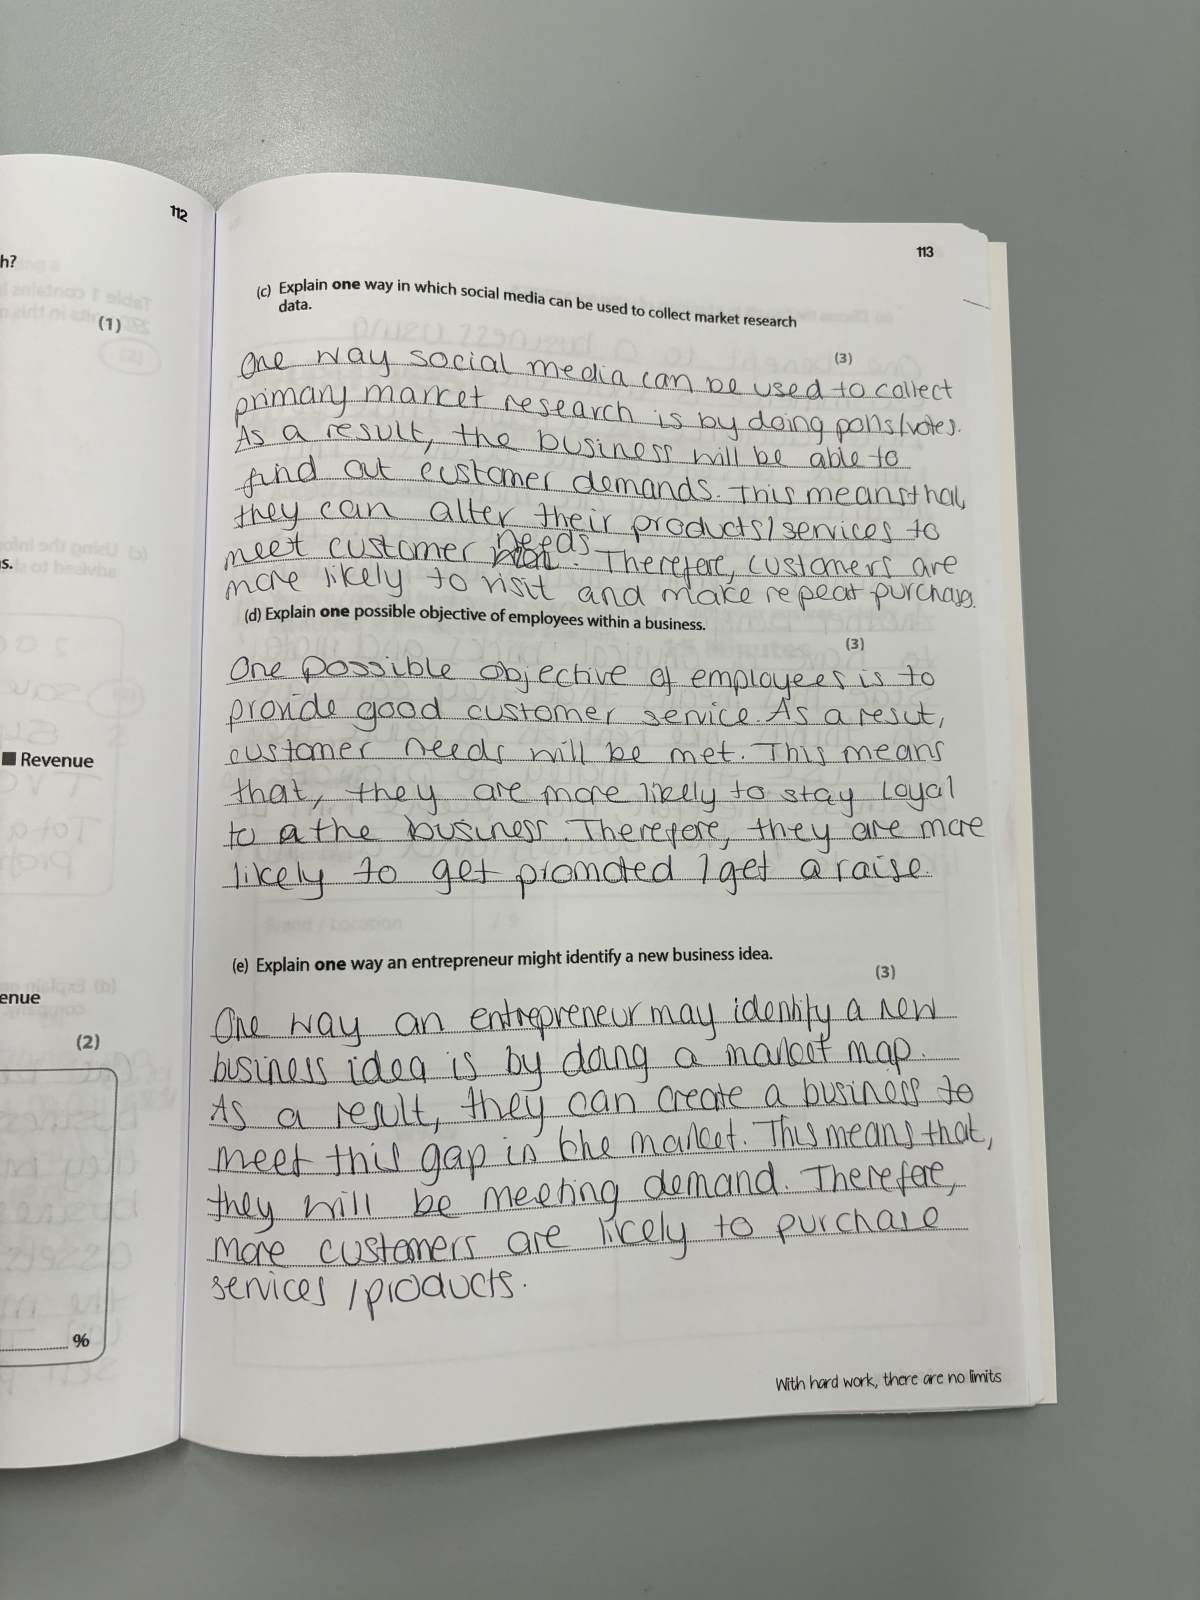 112
h?
(1)
s.
■ Revenue
enue
(2)
%
113
(c) Explain one way in which social media can be used to collect market research
data.
(3)
One way social media can be used to collect
primary market research is by doing polls/votes.
As a result, the business will be able to
find out customer demands. This means that,
they can alter their products/services to
meet customer needs. Therefore, customers are
more likely to visit and make repeat purchases.
(d) Explain one possible objective of employees within a business.
(3)
One possible objective of employees is to
provide good customer service. As a resut,
customer needs will be met. This means
that, they are more likely to stay loyal
to a the business. Therefore, they are more
likely to get promoted / get a raise.
(e) Explain one way an entrepreneur might identify a new business idea.
(3)
One way an entrepreneur may identify a new
business idea is by doing a market map.
As a result, they can create a business to
meet this gap in the market. This means that,
they will be meeting demand. Therefore,
more customers are likely to purchase
services / products.
With hard work, there are no limits